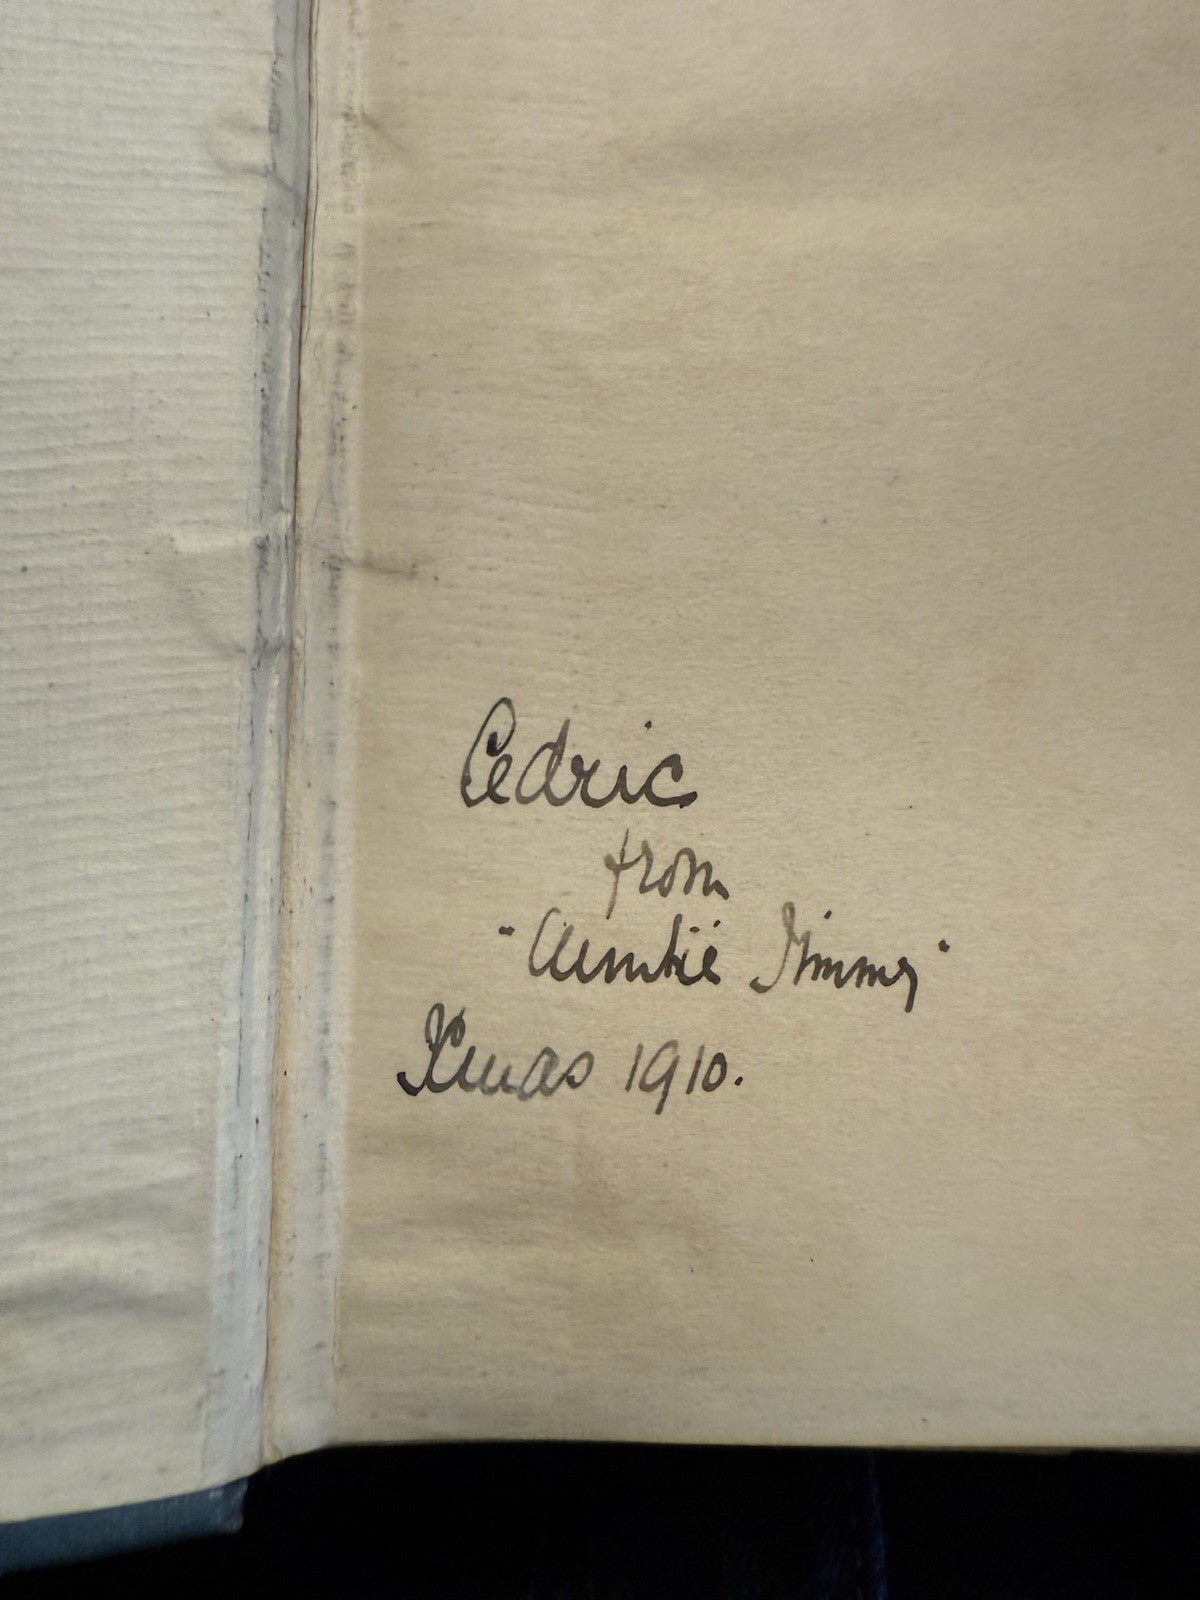 Cedric
from
"Auntie Jimmy"
Xmas 1910.